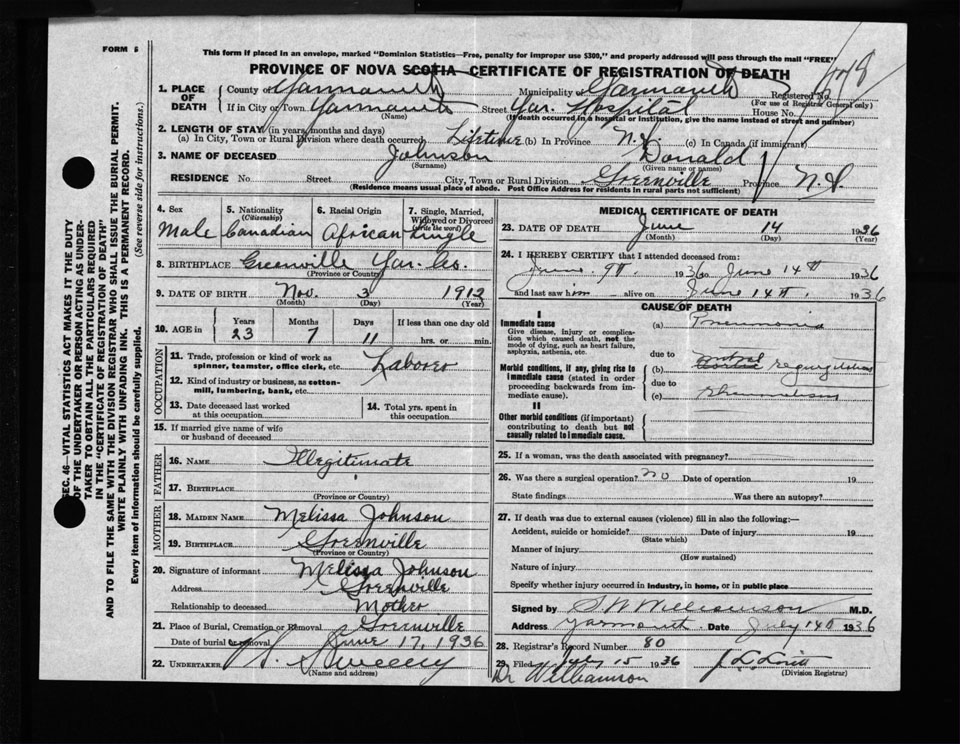 FORM 6
This form if placed in an envelope, marked "Dominion Statistics—Free, penalty for improper use $300," and properly addressed will pass through the mail "FREE"
PROVINCE OF NOVA SCOTIA—CERTIFICATE OF REGISTRATION OF DEATH
1. PLACE OF DEATH
County of Yarmouth Municipality of Yarmouth Registered No.
(For use of Registrar General only)
If in City or Town Yarmouth Street Yar. Hospital House No.
(Name) (If death occurred in a hospital or institution, give the name instead of street and number)
2. LENGTH OF STAY (in years, months and days)
(a) In City, Town or Rural Division where death occurred Lifetime (b) In Province N.S. (c) In Canada (if immigrant)
3. NAME OF DECEASED Johnson Donald
(Surname) (Given name or names)
RESIDENCE No. Street City, Town or Rural Division Greenville Province N.S.
(Residence means usual place of abode. Post Office Address for residents in rural parts not sufficient)
SEC. 46—VITAL STATISTICS ACT MAKES IT THE DUTY
OF THE UNDERTAKER OR PERSON ACTING AS UNDERTAKER TO OBTAIN ALL THE PARTICULARS REQUIRED
IN THE "CERTIFICATE OF REGISTRATION OF DEATH"
AND TO FILE THE SAME WITH THE DIVISION REGISTRAR WHO SHALL ISSUE THE BURIAL PERMIT.
WRITE PLAINLY WITH UNFADING INK. THIS IS A PERMANENT RECORD.
Every item of information should be carefully supplied. (See reverse side for instructions.)
4. Sex
Male
5. Nationality
(Citizenship)
Canadian
6. Racial Origin
African
7. Single, Married, Widowed or Divorced
(write the word)
Single
8. BIRTHPLACE Greenville Yar. Co.
(Province or Country)
9. DATE OF BIRTH Nov. 3 1912
(Month) (Day) (Year)
10. AGE in Years Months Days If less than one day old
23 7 11 hrs. or min.
OCCUPATION
11. Trade, profession or kind of work as spinner, teamster, office clerk, etc. Laborer
12. Kind of industry or business, as cotton-mill, lumbering, bank, etc.
13. Date deceased last worked at this occupation
14. Total yrs. spent in this occupation
15. If married give name of wife or husband of deceased
FATHER
16. NAME Illegitimate
17. BIRTHPLACE
(Province or Country)
MOTHER
18. MAIDEN NAME Melissa Johnson
19. BIRTHPLACE Greenville
(Province or Country)
20. Signature of informant Melissa Johnson
Address Greenville
Relationship to deceased Mother
21. Place of Burial, Cremation or Removal Greenville
Date of burial or removal June 17, 1936
22. UNDERTAKER Sweeny
(Name and address)
MEDICAL CERTIFICATE OF DEATH
23. DATE OF DEATH June 14 1936
(Month) (Day) (Year)
24. I HEREBY CERTIFY that I attended deceased from:
June 9th 1936 to June 14th 1936
and last saw him alive on June 14th 1936
CAUSE OF DEATH
I
Immediate cause
Give disease, injury or complication which caused death, not the mode of dying, such as heart failure, asphyxia, asthenia, etc.
(a) Pneumonia
due to
Morbid conditions, if any, giving rise to immediate cause (stated in order proceeding backwards from immediate cause).
(b) regurgitation
due to
(c) Rheumatism
II
Other morbid conditions (if important) contributing to death but not causally related to immediate cause.
25. If a woman, was the death associated with pregnancy?
26. Was there a surgical operation? no Date of operation 19
State findings Was there an autopsy?
27. If death was due to external causes (violence) fill in also the following:—
Accident, suicide or homicide? Date of injury 19
(State which)
Manner of injury
(How sustained)
Nature of injury
Specify whether injury occurred in industry, in home, or in public place
Signed by S W Williamson M.D.
Address Yarmouth. Date July 14th 1936
28. Registrar's Record Number 80
29. Filed July 15 1936
(Division Registrar)
Dr Williamson